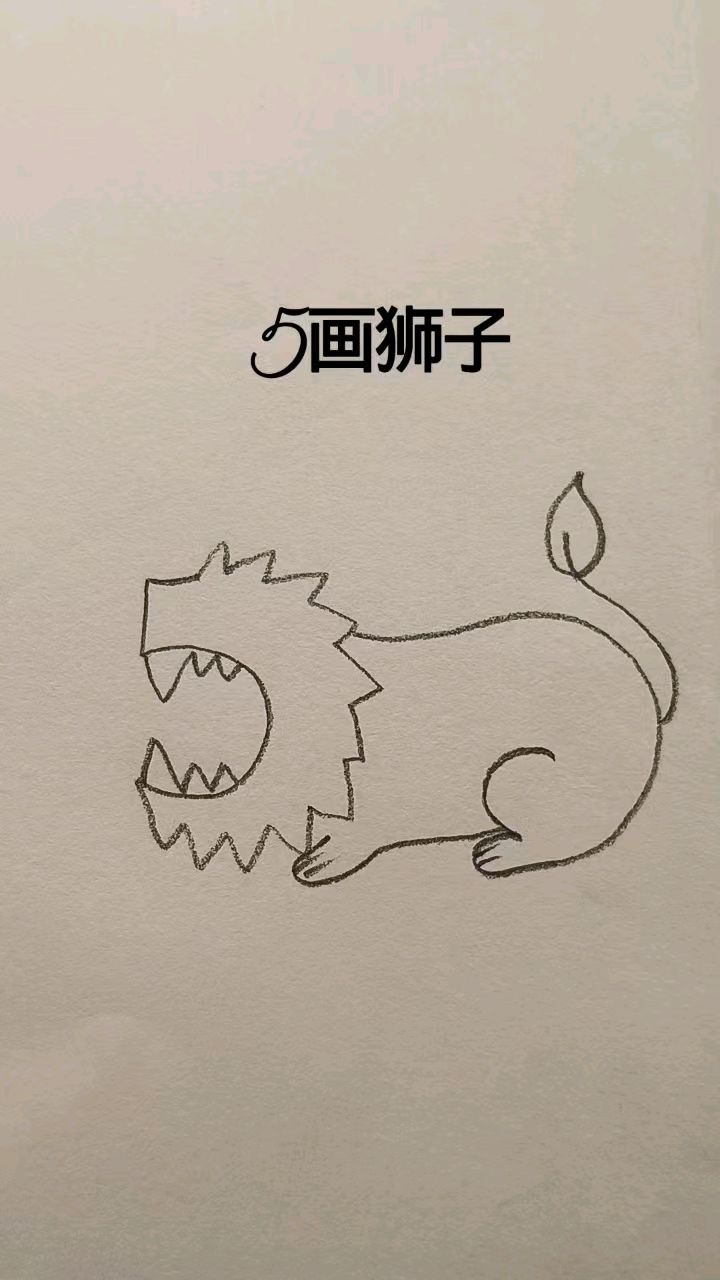 5画狮子